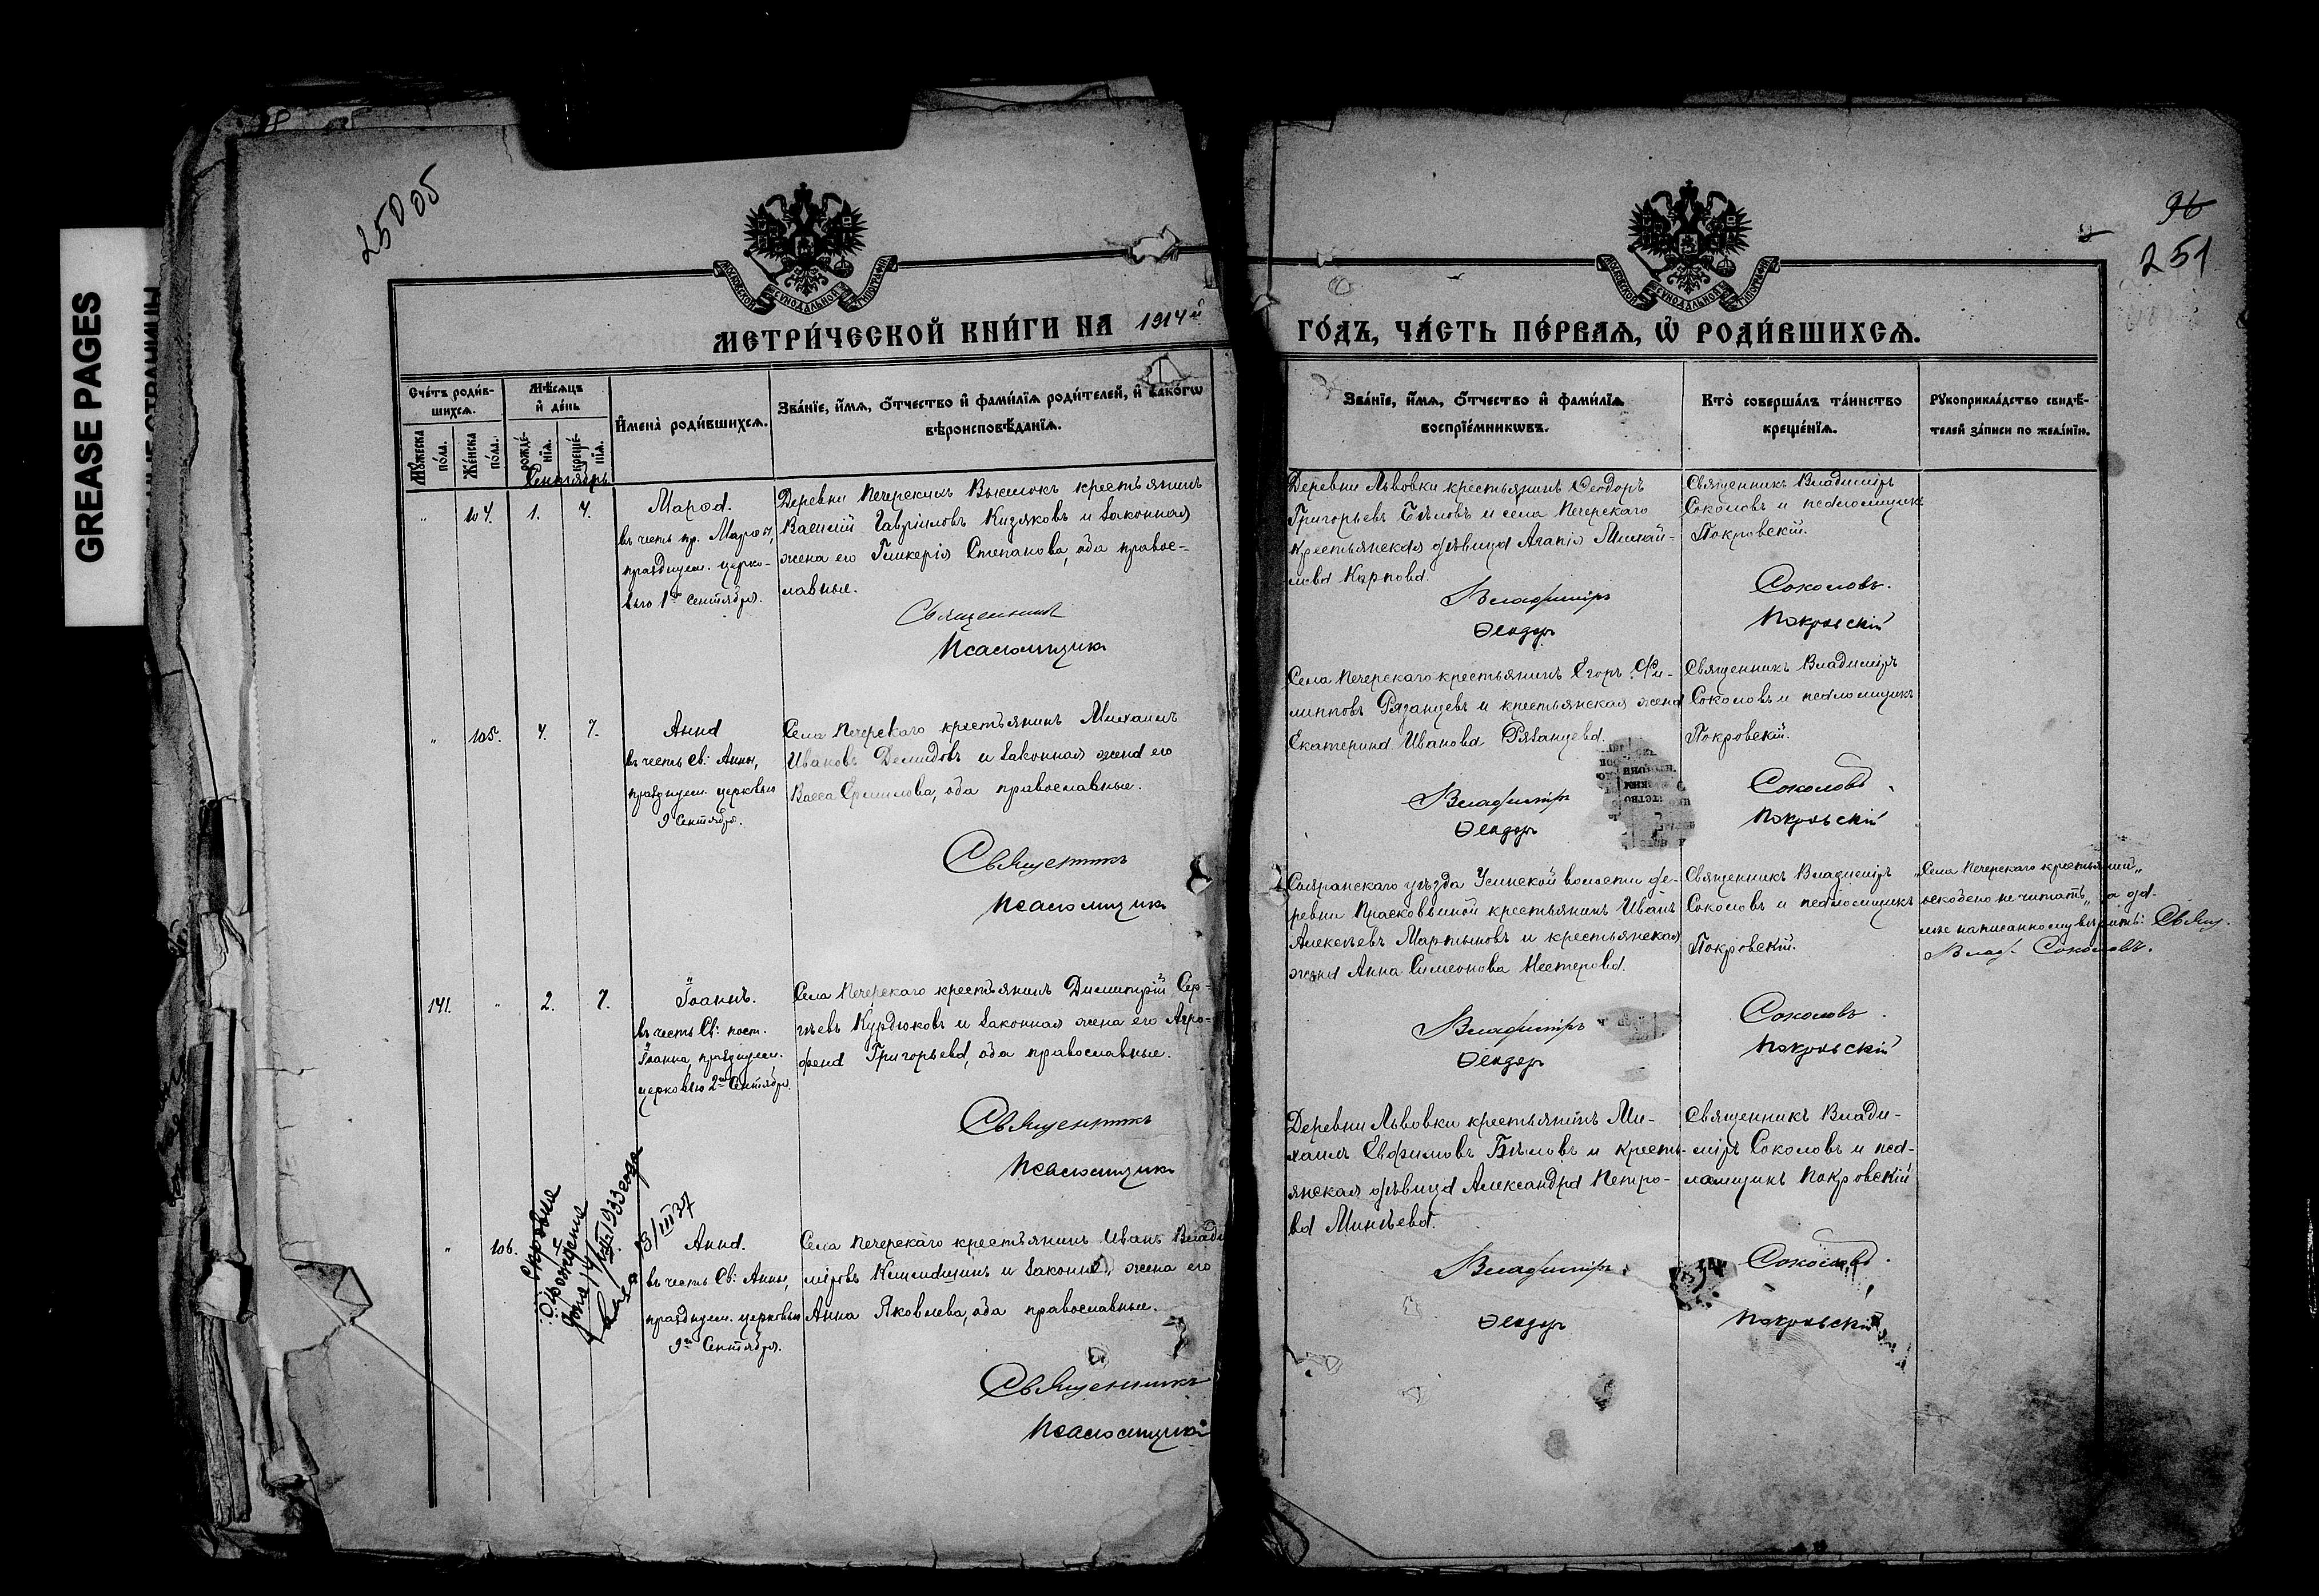 GREASE PAGES
250 об
96
251
МОСКОВСКОЙ СѴНОДАЛЬНОЙ ТИПОГРАФІИ
МОСКОВСКОЙ СѴНОДАЛЬНОЙ ТИПОГРАФІИ
МЕТРИ́ЧЕСКОЙ КНИ́ГИ НА 1914й
ГО́ДЪ, ЧА́СТЬ ПЕ́РВАѦ, Ѡ҆ РОДИ́ВШИХСѦ.
Сче́тъ роди́в-
шихсѧ.
Мꙋ́жеска по́ла.
Же́нска по́ла.
Мѣ́сѧцъ
и҆ де́нь
рожде́-
нїѧ.
креще́-
нїѧ.
И҆мена̀ роди́вшихсѧ.
Зва́нїе, и҆́мѧ, ѻ҆́тчество и҆ фами́лїѧ роди́телей, и҆ како́гѡ
вѣроисповѣ́данїѧ.
Зва́нїе, и҆́мѧ, ѻ҆́тчество и҆ фами́лїѧ
воспрїе́мникѡвъ.
Кто̀ соверша́лъ та́инство
креще́нїѧ.
Рꙋкоприкла́дство свидѣ́-
телей за́писи по жела́нїю.
Сентябрь
" 104. 1. 4.
Марѳа.
въ честь пр. Марѳы,
празднуем. церко-
вью 1го Сентября.
Деревни Печерскихъ Выселокъ крестьянинъ
Василій Гавріиловъ Кизяковъ и законная
жена его Гликерія Степанова, оба правос-
лавные.
Священникъ
Псаломщикъ
Деревни Львовки крестьянинъ Ѳеодоръ
Григорьевъ Бѣловъ и села Печерскаго
крестьянская дѣвица Агапія Михай-
лова Карпова.
Владиміръ
Ѳеодоръ
Священникъ Владиміръ
Соколовъ и псаломщикъ
Покровскій.
Соколовъ.
Покровскій
" 105. 4. 7.
Анна
въ честь св: Анны,
празднуем. церковью
9 Сентября.
Села Печерскаго крестьянинъ Михаилъ
Ивановъ Демидовъ и законная жена его
Васса Ермилова, оба православные.
Священникъ
Псаломщикъ
Села Печерскаго крестьянинъ Егоръ Фи-
липповъ Рязанцевъ и крестьянская жена
Екатерина Иванова Рязанцева.
Владиміръ
Ѳеодоръ
Священникъ Владиміръ
Соколовъ и псаломщикъ
Покровскій.
Соколовъ
Покровскій
141. " 2. 7.
Іоаннъ.
въ честь Св: пост.
Іоанна, празднуем.
церковью 2го Сентября.
Села Печерскаго крестьянинъ Димитрій Сер-
гѣевъ Курдюковъ и законная жена его Агро-
фена Григорьева, оба православные.
Священникъ
Псаломщикъ
Сызранскаго уѣзда Усинской волости де-
ревни Прасковьиной крестьянинъ Иванъ
Алексѣевъ Мартыновъ и крестьянская
жена Анна Симеонова Нестерова.
Владиміръ
Ѳеодоръ
Священникъ Владиміръ
Соколовъ и псаломщикъ
Покровскій.
Соколовъ
Покровскій
"Села Печерскаго крестьянин"
оскоблено не читать, а да-
лѣе написанному вѣрить: Свящ.
Влад. Соколовъ.
" 106.
Анна.
въ честь Св: Анны,
празднуем. церковью
9го Сентября.
Села Печерскаго крестьянинъ Иванъ Влади
міровъ и законная жена его
Анна Яковлева, оба православные.
Священникъ
Псаломщикъ
о рожденіи
1933 года
8/III 37
Деревни Львовки крестьянинъ Ми-
хаилъ Евфимовъ Бѣловъ и кресть-
янская дѣвица Александра Петро-
ва Минѣева.
Владиміръ
Ѳеодоръ
Священникъ Влади-
міръ Соколовъ и пса-
ломщикъ Покровскій
Соколовъ.
Покровскій